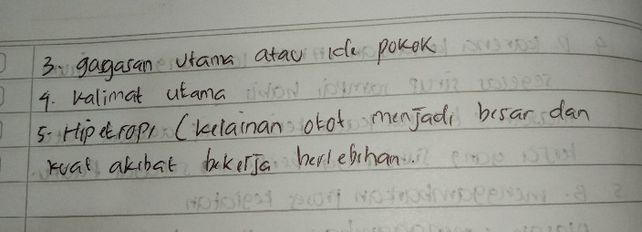 3. gagasan utama atau ide pokok
4. kalimat utama
5. Hipetropi (kelainan otot menjadi besar dan
kuat akibat bekerja berlebihan.